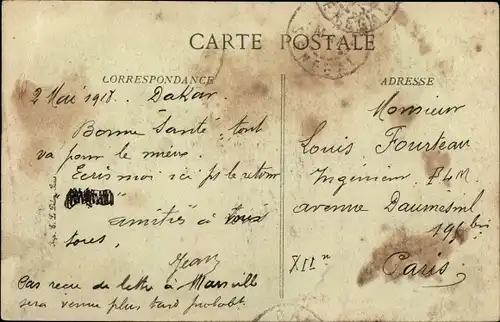 CARTE POSTALE
CORRESPONDANCE
2 Mai 1918. Dakar.
Bonne Santé, tout
va pour le mieux.
Ecris moi ici pr le retour
amitiés à
Jean
Pas recu de lettre à
sera venue plus tard probabt.
ADRESSE
Monsieur
Louis Fourteau
Ingénieur PLM
avenue Daumesnil
196 bis
XII e
Paris